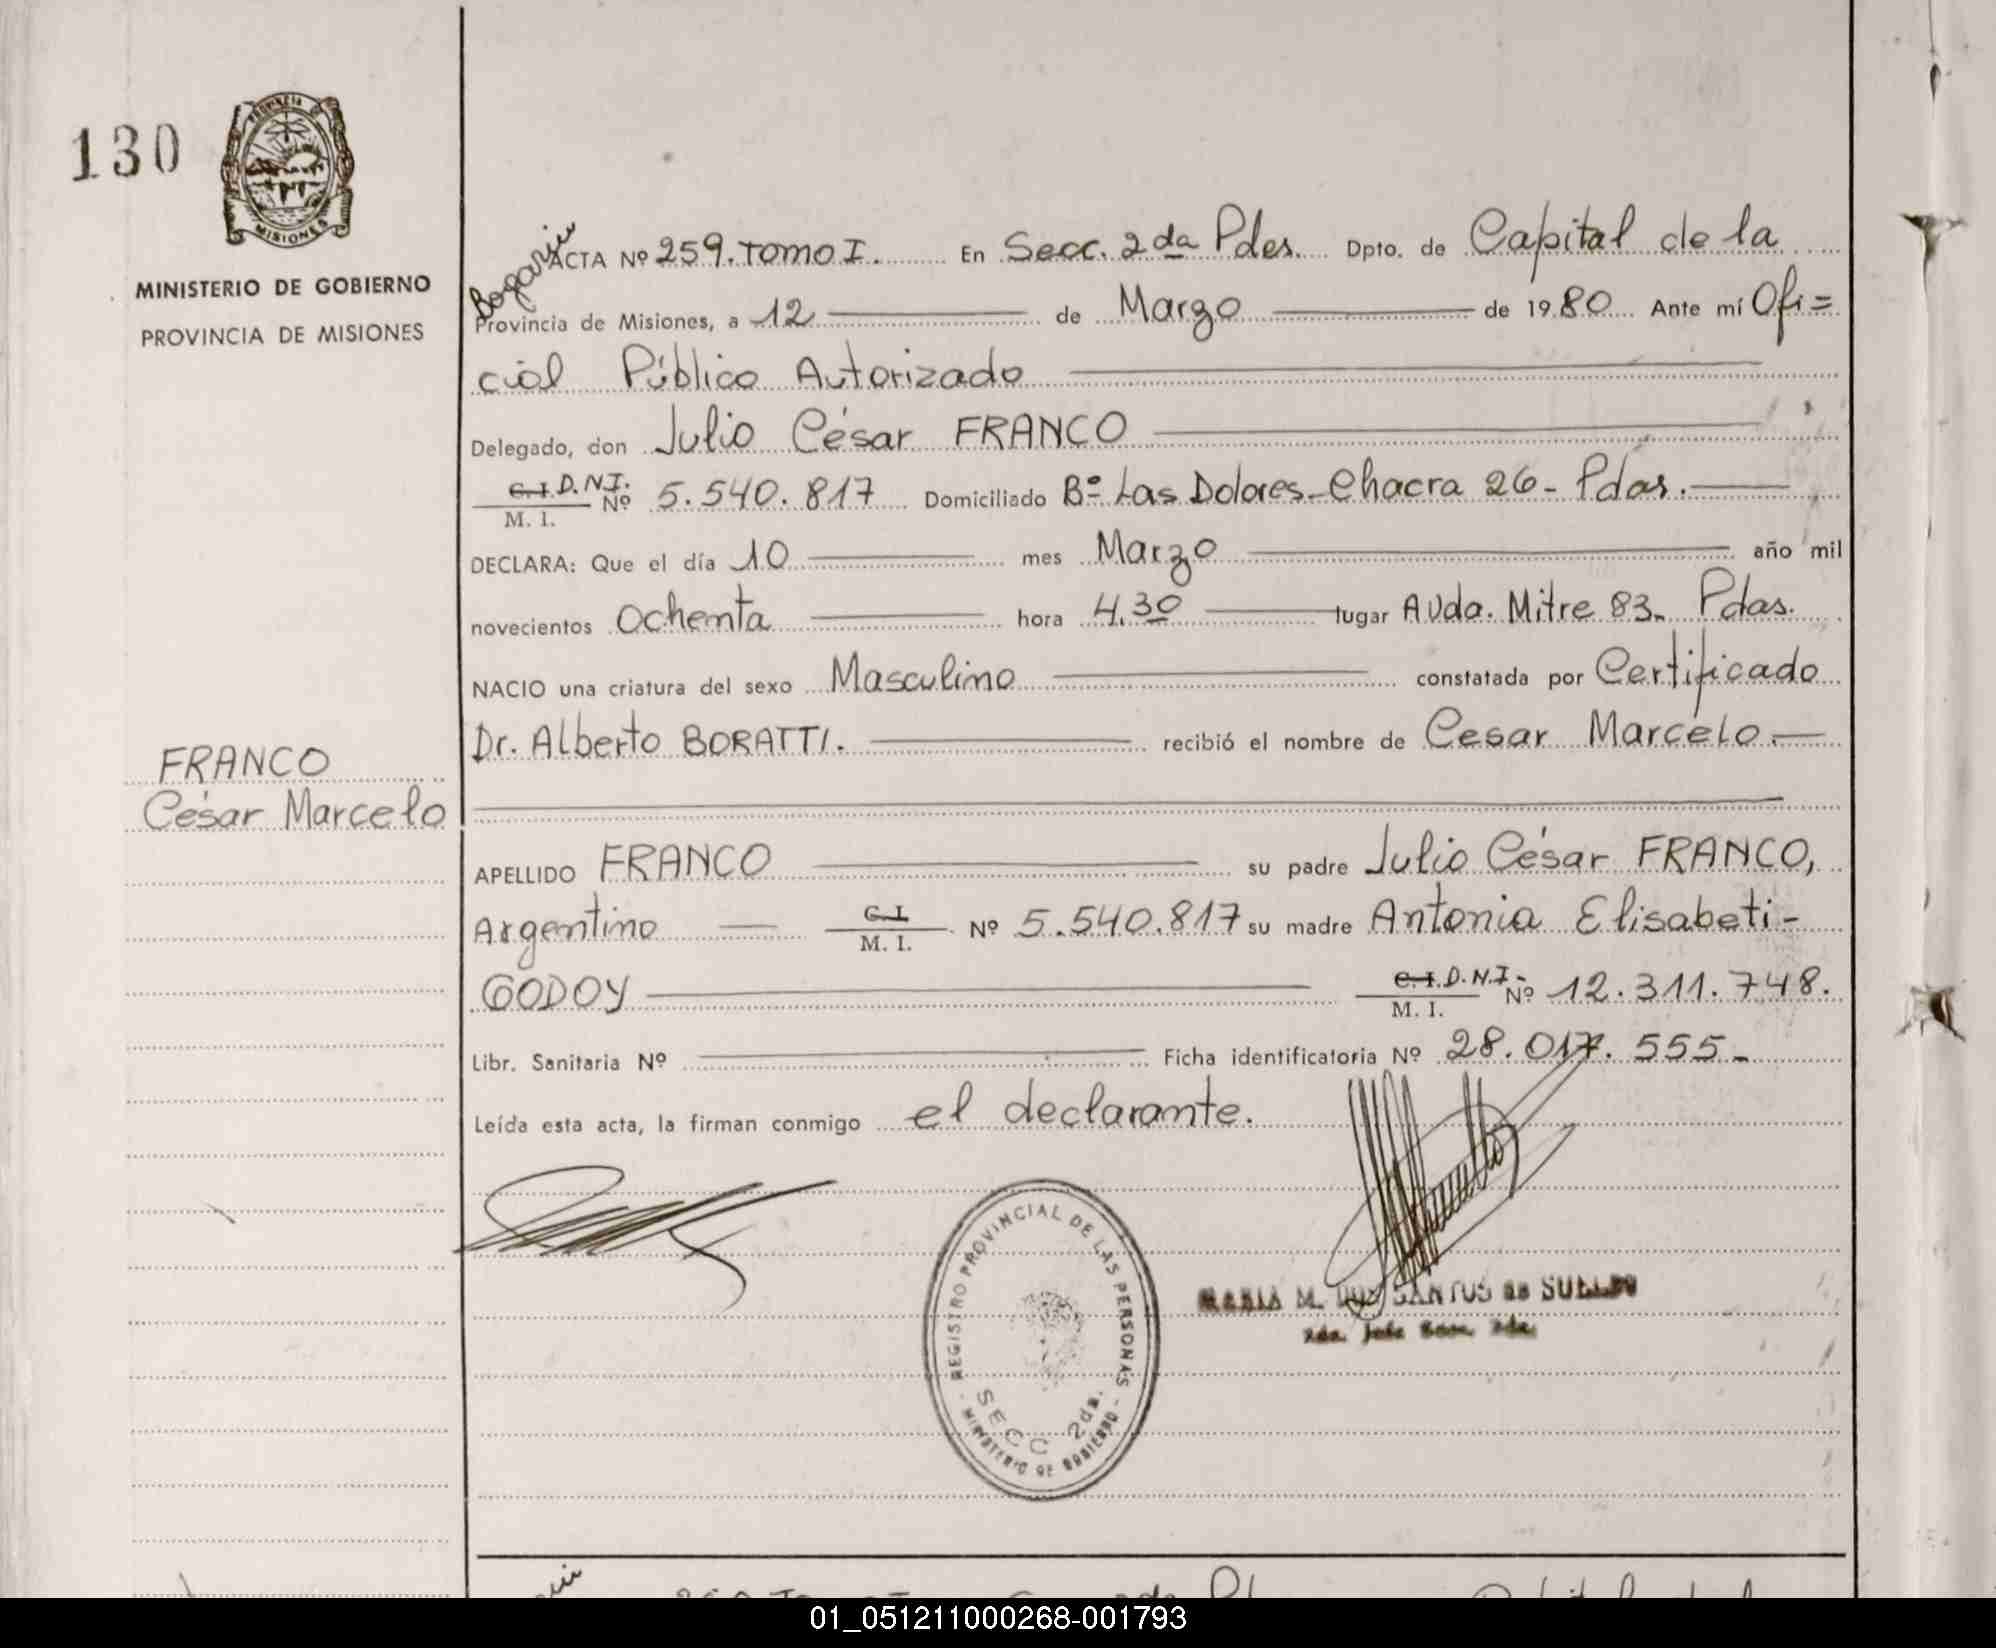 130
PROVINCIA DE
MISIONES
MINISTERIO DE GOBIERNO
PROVINCIA DE MISIONES
FRANCO
César Marcelo
ACTA Nº 259. Tomo I. En Secc. 2da Pdas. Dpto. de Capital de la
Provincia de Misiones, a 12 de Marzo de 1980. Ante mí Ofi=
cial Público Autorizado
Delegado, don Julio César FRANCO
C.I. D.N.I. Nº 5.540.817 Domiciliado Bº Las Dolores - Chacra 26 - Pdas.
M. I.
DECLARA: Que el día 10 mes Marzo año mil
novecientos ochenta hora 4.30 lugar Avda. Mitre 83 - Pdas.
NACIO una criatura del sexo Masculino constatada por Certificado
Dr. Alberto BORATTI. recibió el nombre de Cesar Marcelo.
APELLIDO FRANCO su padre Julio César FRANCO,
Argentino C.I. Nº 5.540.817 su madre Antonia Elisabeti-
M. I.
GODOY C.I. D.N.I. Nº 12.311.748.
M. I.
Libr. Sanitaria Nº Ficha identificatoria Nº 28.017.555-
Leída esta acta, la firman conmigo el declarante.
REGISTRO PROVINCIAL DE LAS PERSONAS
SECC 2da.
MINISTERIO DE GOBIERNO
MARIA M. DOS SANTOS de
01_051211000268-001793